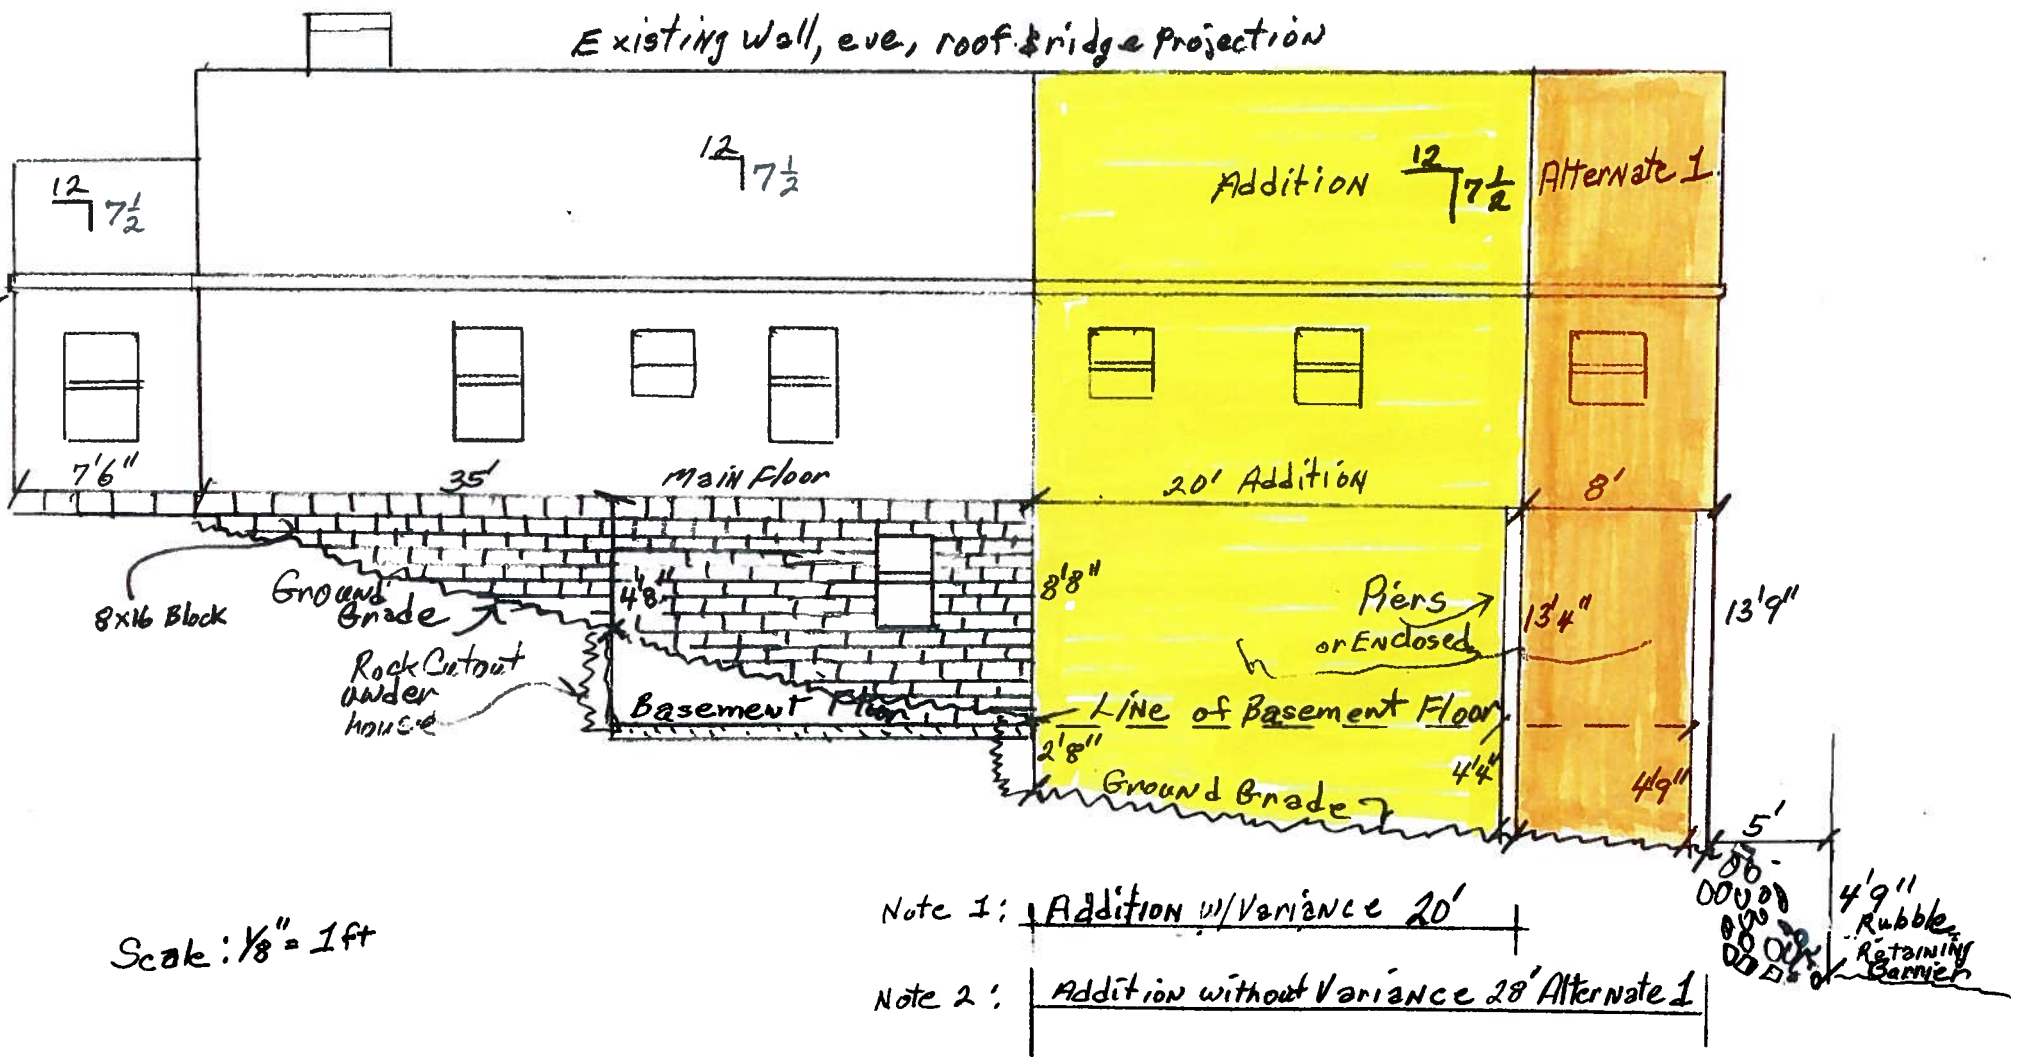 Existing Wall, eve, roof & ridge Projection
12
7 1/2
12
7 1/2
Addition
12
7 1/2
Alternate 1
7'6"
35'
Main Floor
20' Addition
8'
8x16 Block
Ground
Grade
4'8"
8'8"
Piers
or Enclosed
13'4"
13'9"
Rock Cutout
under
house
Basement Floor
Line of Basement Floor
2'8"
4'4"
4'9"
Ground Grade
5'
4'9"
Rubble
Retaining
Barrier
Note 1: Addition w/Variance 20'
Scale: 1/8" = 1ft
Note 2: Addition without Variance 28' Alternate 1